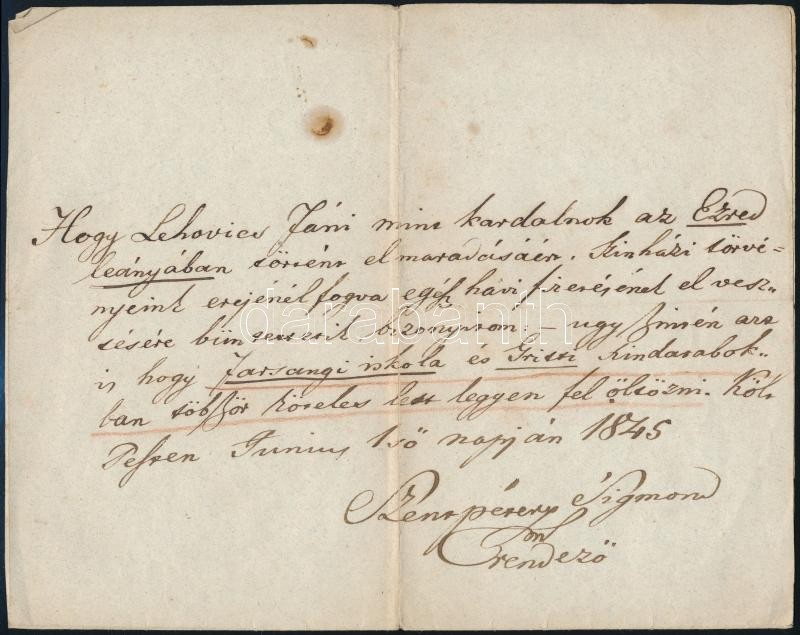 Hogy Lehovics Jáni mint kardalnok az Ezred
leányában történt elmaradásáért. Szinházi törvé-
nyeink erejénél fogva egész havi fizetésének el vesz„
tésére büntettetik bizonyitom: – ugy szintén azt
is hogy farsangi iskola és Griseldi szindarabok„
ban többször köteles lett légyen fel öltözni. Költ
Pesten Junius 1ső napján 1845
Szentpétery Sigmond
rendező
darabanth.com